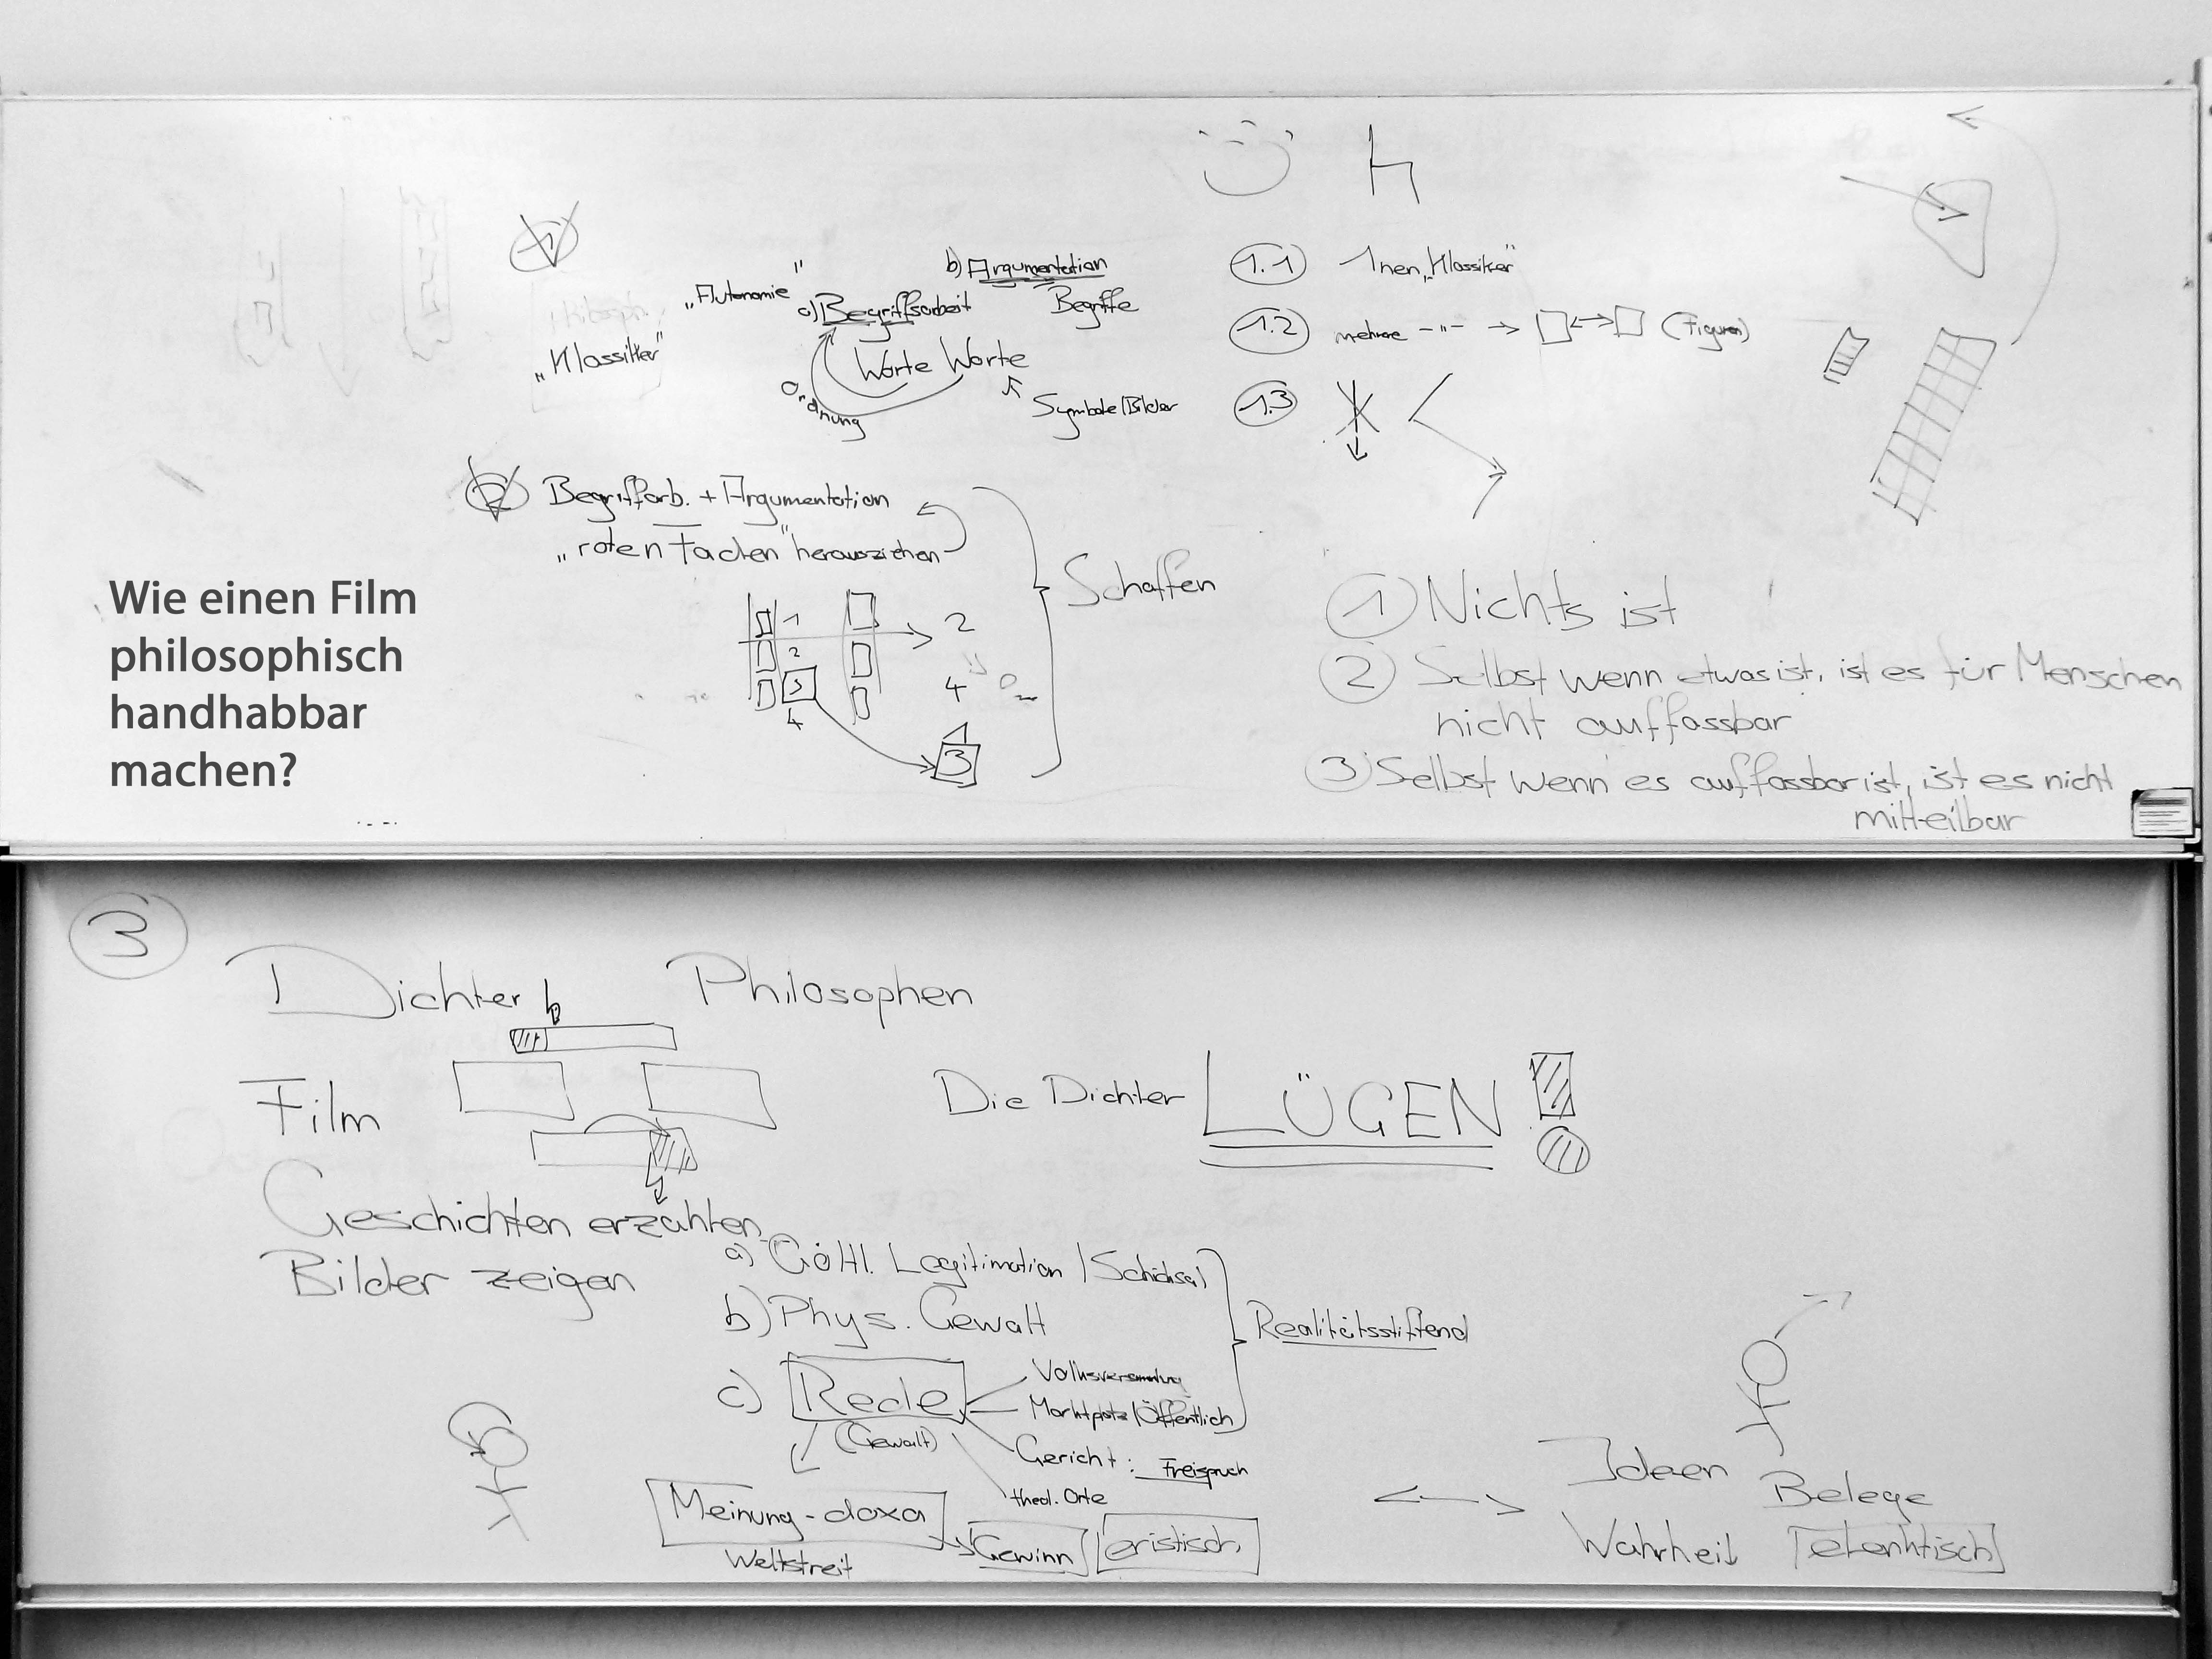 1
„Klassiker"
„Autonomie"
a) Begriffsarbeit
b) Argumentation
Begriffe
Worte Worte
Ordnung
Symbole/Bilder
2 Begriffarb. + Argumentation
„roten Faden" herausziehen
Schaffen
1
2
3
4
2
4
3
1.1 1nen „Klassiker"
1.2 mehrere -"- → (Figuren)
1.3
1 Nichts ist
2 Selbst wenn etwas ist, ist es für Menschen
nicht auffassbar
3 Selbst wenn es auffassbar ist, ist es nicht
mitteilbar
Wie einen Film
philosophisch
handhabbar
machen?
3
Dichter Philosophen
Film
Die Dichter LÜGEN!
Geschichten erzählen
Bilder zeigen
a) Göttl. Legitimation / Schicksal
b) Phys. Gewalt
c) Rede
(Gewalt)
Volksversammlung
Marktplatz/Öffentlich
Gericht: Freispruch
theol. Orte
Realitätsstiftend
Meinung - doxa
Weltstreit
Gewinn
eristisch
Ideen
Belege
Wahrheit